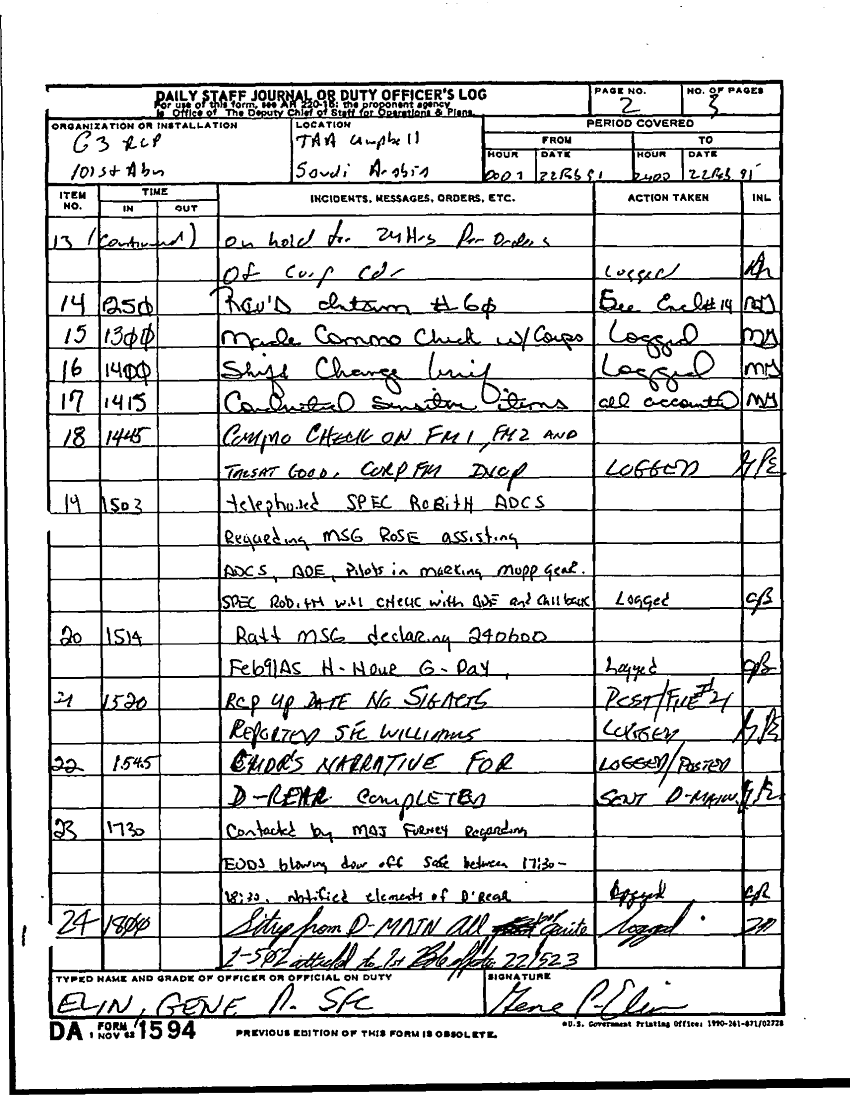 DAILY STAFF JOURNAL OR DUTY OFFICER'S LOG
For use of this form, see AR 220-15; the proponent agency
is Office of The Deputy Chief of Staff for Operations & Plans.
PAGE NO.
2
NO. OF PAGES
3
ORGANIZATION OR INSTALLATION
G3 RCP
101st Abn
LOCATION
TAA Campbell
Saudi Arabia
PERIOD COVERED
FROM
TO
HOUR
DATE
HOUR
DATE
0001
22 Feb 91
2400
22 Feb 91
ITEM NO.
TIME
IN
OUT
INCIDENTS, MESSAGES, ORDERS, ETC.
ACTION TAKEN
INL
13 (Continued) on hold for 24 Hrs Per Orders
Of Corp Cdr Logged
14 1250 Rcv'd #60 See Encl #14 MM
15 1300 Made Commo Check w/ Corps Logged MM
16 1400 Shift Change brief Logged MM
17 1415 Conducted Sensitive items all accounted MM
18 1445 COMMO CHECK ON FM1, FM2 AND
TACSAT GOOD. CORP FM LOGGED
19 1503 telephoned SPEC RoBitH ADCS
Regarding MSG ROSE assisting
ADCS, ADE, Pilots in marking Mopp Gear.
SPEC RobitH will CHECK with ADE and Call back Logged
20 1514 Ratt MSG declaring 240600
Feb 91 AS H-Hour G-Day, Logged
21 1520 RCP Up DATE NO SIGACTS POST/FILE #21
REPORTED SFC WILLIAMS LOGGED
22 1545 CMDR'S NARRATIVE FOR LOGGED/POSTED
D-REAR COMPLETED SENT D-MAIN
23 1730 Contacted by MAJ Furney Regarding
EODS blowing door off Safe between 17:30-
18:30. Notified elements of D'Rear Logged
24 1800 Sitrep from D-MAIN All Logged
1-502 attached to 1st Bde 221523
TYPED NAME AND GRADE OF OFFICER OR OFFICIAL ON DUTY
ELIN, GENE P. SFC
SIGNATURE
Gene P. Elin
DA FORM 1594
1 NOV 62
PREVIOUS EDITION OF THIS FORM IS OBSOLETE.
U.S. Government Printing Office: 1990-261-871/02728